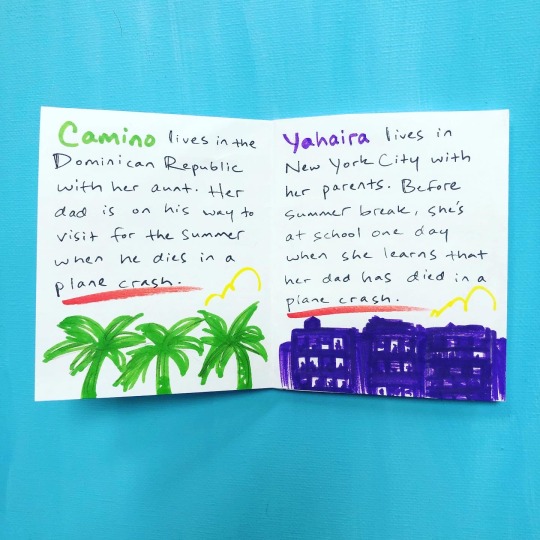 Camino lives in the
Dominican Republic
with her aunt. Her
dad is on his way to
visit for the summer
when he dies in a
plane crash.
Yahaira lives in
New York City with
her parents. Before
summer break, she's
at school one day
when she learns that
her dad has died in a
plane crash.